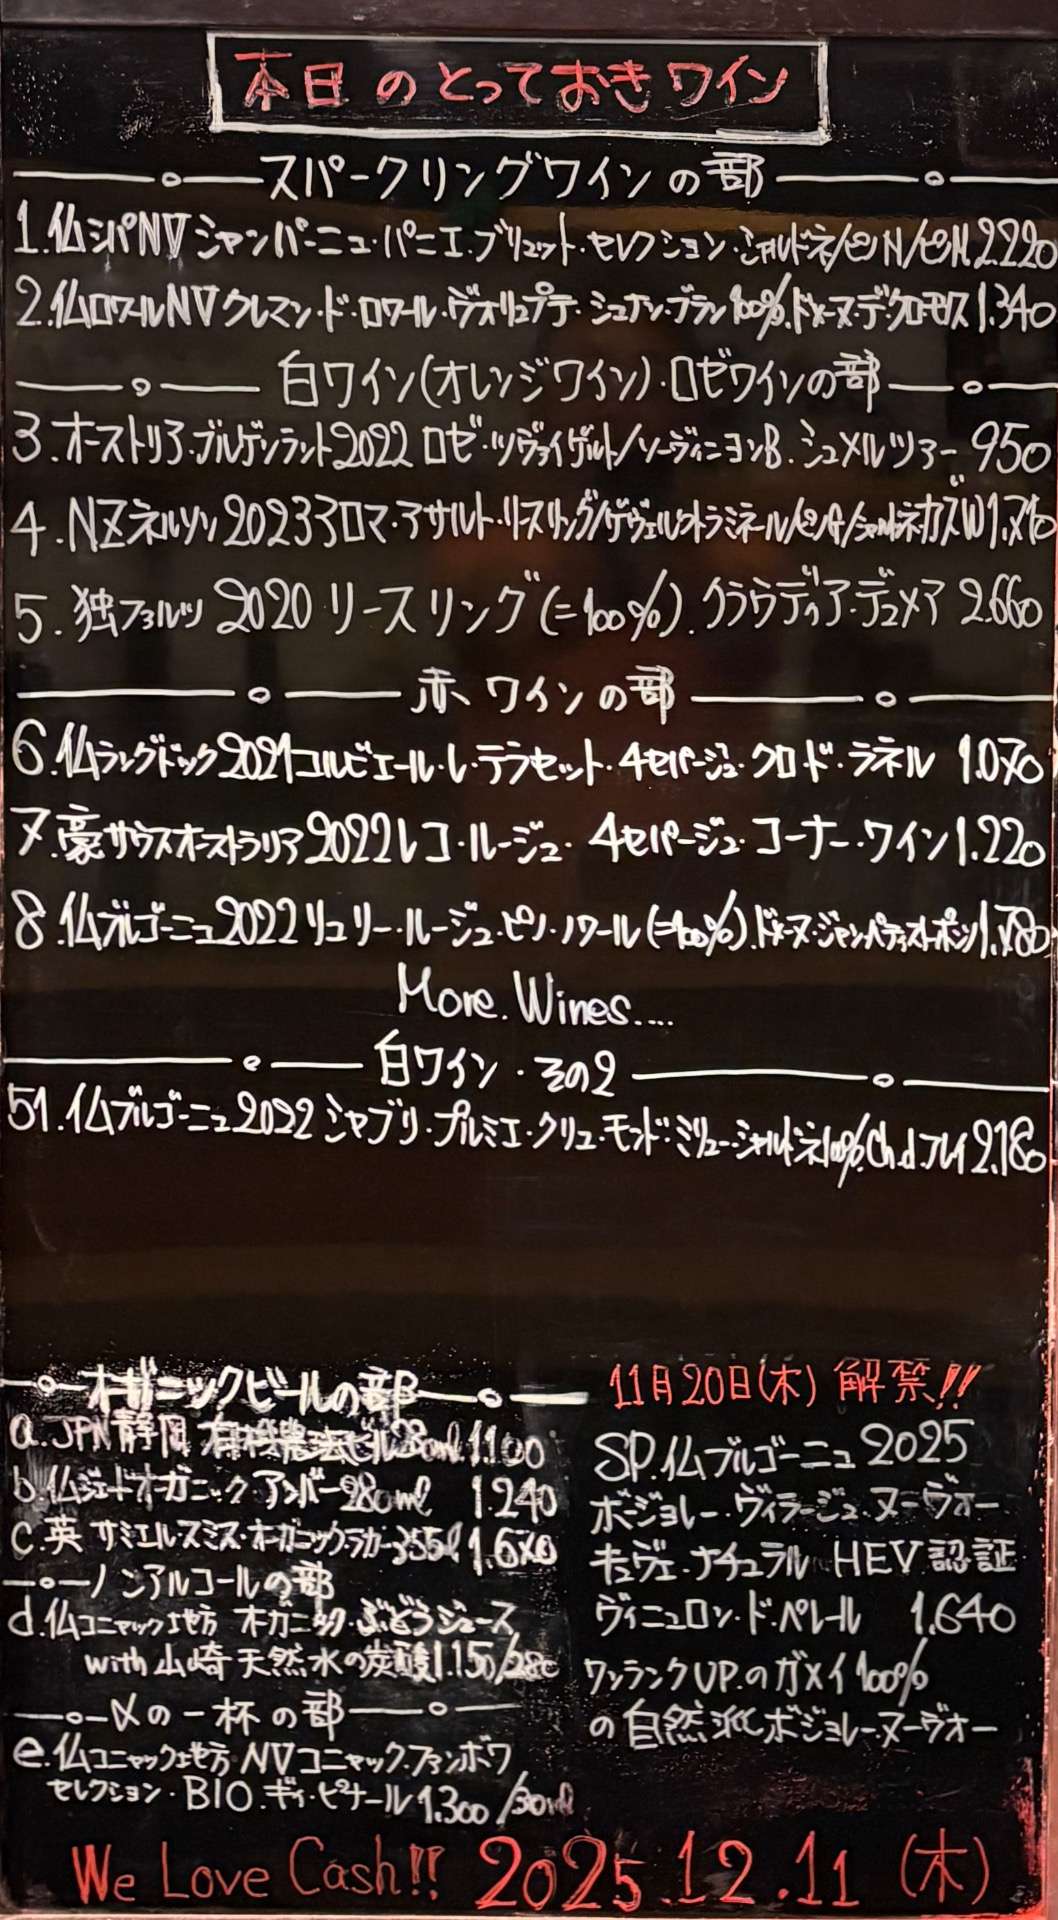 本日のとっておきワイン
スパークリングワインの部
1.仏シパNVシャンパーニュ・パニエ.ブリュット・セレクション・シャルドネ/ピノN/ピノM 2.220
2.仏ロワールNVクレマン・ド・ロワール・ヴォリュプテ・シュナン・ブラン100%.ドメーヌ・デ・クロモワス 1.340
白ワイン(オレンジワイン)・ロゼワインの部
3.オーストリア.ブルゲンラント2022ロゼ・ツヴァイゲルト/ソーヴィニヨンB.シュメルツァー 950
4.NZネルソン2023アロマ・アサルト・リースリング/ゲヴェルツトラミネール/ピノG/シャルドネ カズW 1.710
5.独ファルツ 2020 リースリング(=100%).クラウディア・デュメア 2.660
赤ワインの部
6.仏ラングドック2021コルビエール・レ・テラセット・4セパージュ・クロド・ラネル 1.070
7.豪サウスオーストラリア2022レコ・ルージュ・4セパージュ・コーナー・ワイン 1.220
8.仏ブルゴーニュ2022リュリー・ルージュ・ピノ・ノワール(=100%).ドメーヌ・ジャン・バティスト・ポンソ 1.780
More.Wines....
白ワイン・その2
51.仏ブルゴーニュ2022シャブリ・プルミエ・クリュ・モン・ド・ミリュー・シャルドネ100%.Ch.d.フレイ 2.180
オーガニックビールの部
a.JPN静岡 有機農法ビール 28ml 1.100
b.仏ジェードオーガニック アンバー280ml 1.240
c.英 サミエル・スミス・オーガニック・ラガー 355l 1.670
ノンアルコールの部
d.仏コニャック地方 オーガニック・ぶどうジュース
with山崎天然水の炭酸 1.150/280
〆の一杯の部
e.仏コニャック地方 NVコニャック.ファンボワ
セレクション・BIO.ギィ・ピナール 1.300/30ml
11月20日(木) 解禁!!
SP.仏ブルゴーニュ 2025
ボージョレー・ヴィラージュ・ヌーヴォー
キュヴェ・ナチュラル HEV認証
ヴィニュロン・ド・ペレール 1.640
ワンランクUP.のガメイ100%
の自然派ボジョレーヌーヴォー
We Love Cash!! 2025.12.11 (木)